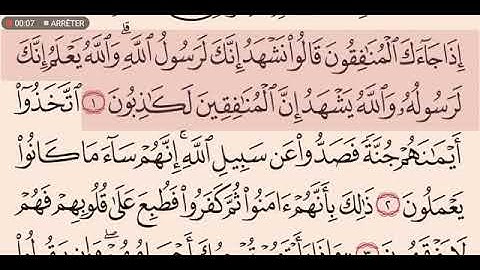 00:07 ARRÊTER
إِذَا جَآءَكَ ٱلْمُنَٰفِقُونَ قَالُوا۟ نَشْهَدُ إِنَّكَ لَرَسُولُ ٱللَّهِ ۗ وَٱللَّهُ يَعْلَمُ إِنَّكَ
لَرَسُولُهُۥ وَٱللَّهُ يَشْهَدُ إِنَّ ٱلْمُنَٰفِقِينَ لَكَٰذِبُونَ ١ ٱتَّخَذُوٓا۟
أَيْمَٰنَهُمْ جُنَّةً فَصَدُّوا۟ عَن سَبِيلِ ٱللَّهِ ۚ إِنَّهُمْ سَآءَ مَا كَانُوا۟
يَعْمَلُونَ ٢ ذَٰلِكَ بِأَنَّهُمْ ءَامَنُوا۟ ثُمَّ كَفَرُوا۟ فَطُبِعَ عَلَىٰ قُلُوبِهِمْ فَهُمْ
لَا يَفْقَهُونَ ٣ وَإِذَا رَأَيْتَهُمْ تُعْجِبُكَ أَجْسَامُهُمْ ۖ وَإِن يَقُولُوا۟